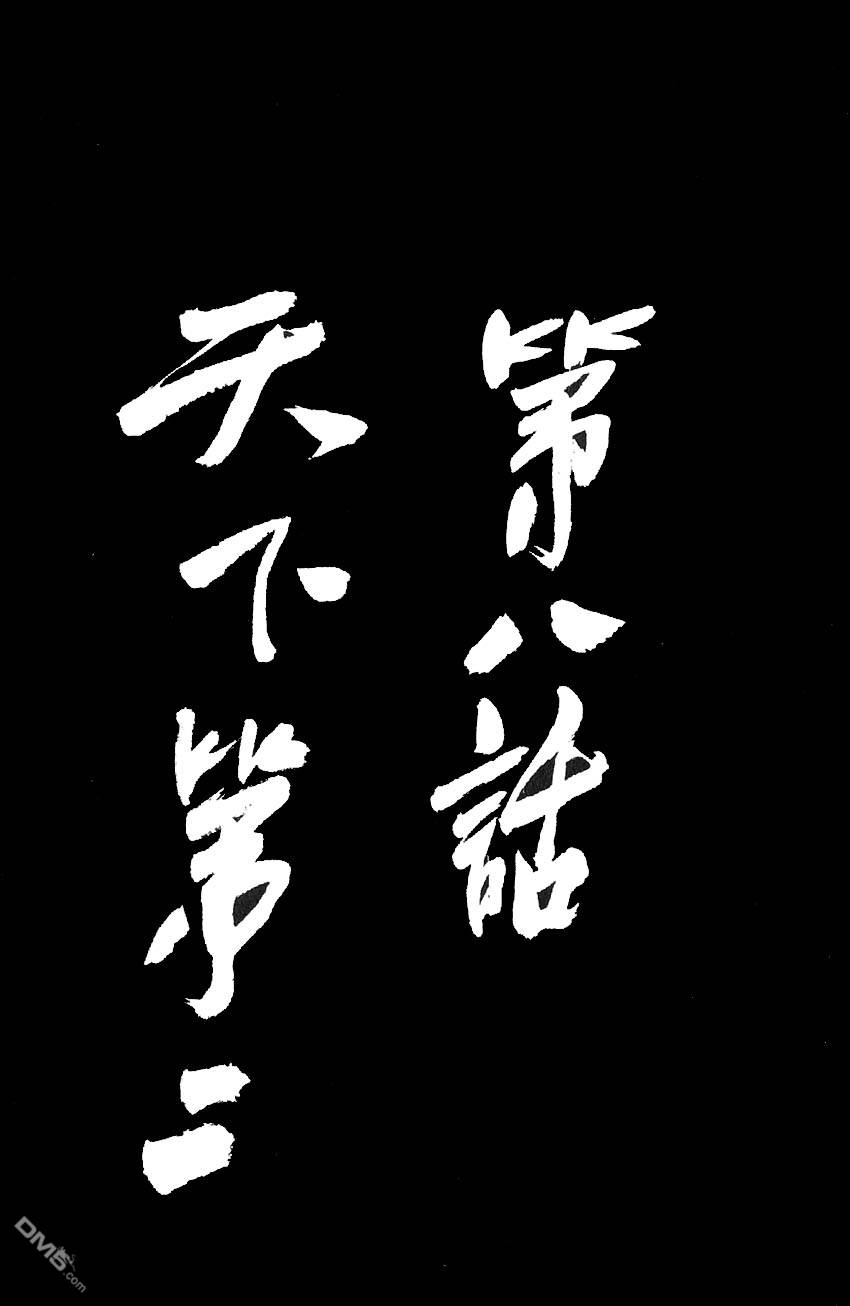 第八話
天下第二
DM5.com